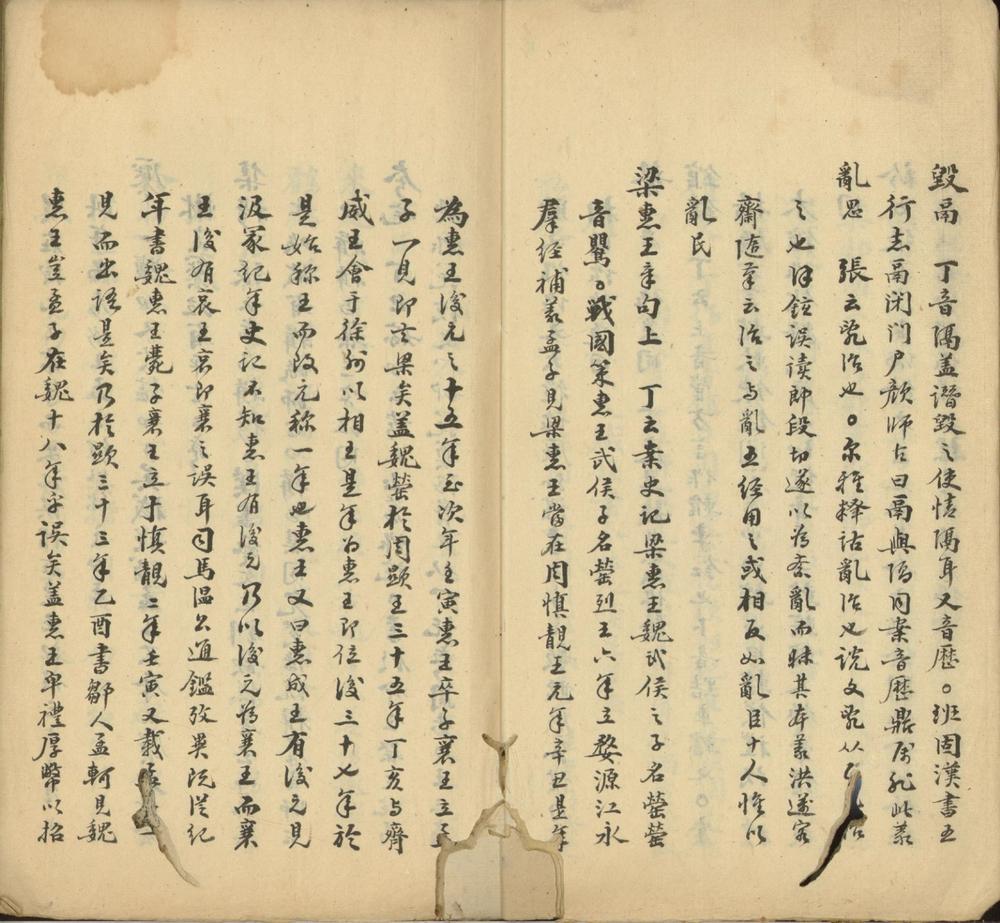 毀鬲　丁音隔盖譖毀之使情隔耳又音歷。班固漢書五
行志鬲闭门户颜师古曰鬲與隔同案音歷鼎属非此義
亂思　張云治也。尔雅釋詁亂治也说文从治
之也徐鉉误读郎段切遂以為紊亂而昧其本義洪邁容
齋隨筆云治之与亂五经用之或相反如亂臣十人惟以
亂民
梁惠王章句上　丁云案史记梁惠王魏武侯之子名罃罃
音罌。戰國策惠王武侯子名罃烈王六年立婺源江永
羣经補義孟子見梁惠王當在周慎靚王元年辛丑是年
為惠王後元之十五年至次年壬寅惠王卒子襄王立孟
子一見即去梁矣盖魏罃於周顯王三十五年丁亥与齊
威王會于徐州以相王是年为惠王即位後三十七年於
是始称王而改元称一年也惠王又曰惠成王有後元見
汲冢纪年史记不知惠王有後元乃以後元為襄王而襄
王後有哀王哀即襄之误耳司馬温公通鑑攷異既從纪
年書魏惠王薨子襄王立于慎靚二年壬寅又載孟子一
見而出语是矣乃於顯三十三年乙酉書鄒人孟軻見魏
惠王豈孟子在魏十八年乎误矣盖惠王卑禮厚幣以招